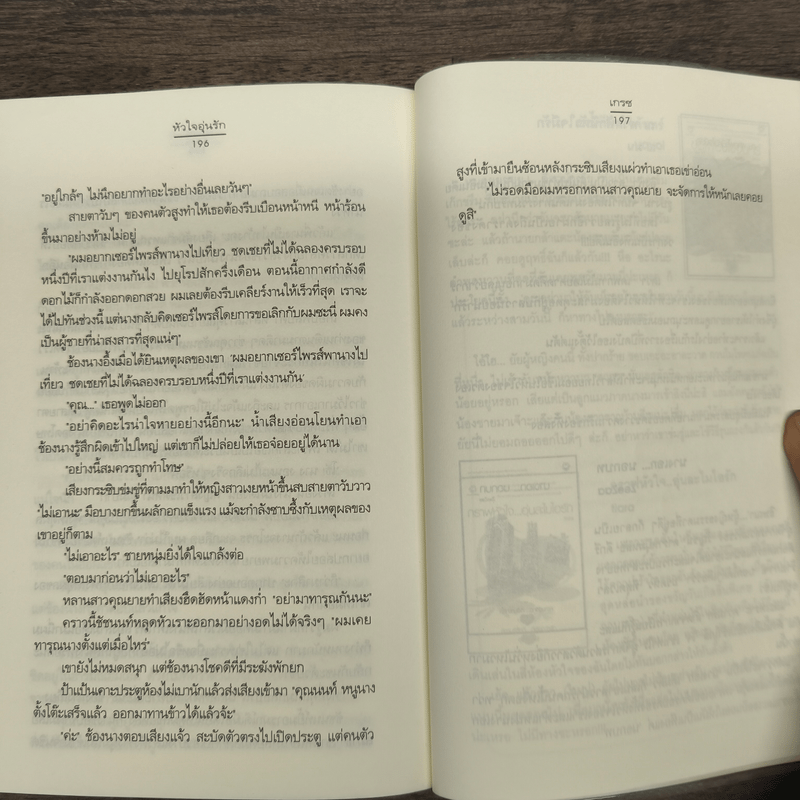 หัวใจอุ่นรัก
196
"อยู่ใกล้ๆ ไม่นึกอยากทำอะไรอย่างอื่นเลยวันๆ"
สายตาวับๆ ของคนตัวสูงทำให้เธอต้องรีบเบือนหน้าหนี หน้าร้อน
ขึ้นมาอย่างห้ามไม่อยู่
"ผมอยากเซอร์ไพรส์พานางไปเที่ยว ชดเชยที่ไม่ได้ฉลองครบรอบ
หนึ่งปีที่เราแต่งงานกันไง ไปยุโรปสักครึ่งเดือน ตอนนี้อากาศกำลังดี
ดอกไม้ก็กำลังออกดอกสวย ผมเลยต้องรีบเคลียร์งานให้เร็วที่สุด เราจะ
ได้ไปทันช่วงนี้ แต่นางกลับคิดเซอร์ไพรส์โดยการขอเลิกกับผมซะนี่ ผมคง
เป็นผู้ชายที่น่าสงสารที่สุดแน่ๆ"
ช้องนางอึ้งเมื่อได้ยินเหตุผลของเขา 'ผมอยากเซอร์ไพรส์พานางไป
เที่ยว ชดเชยที่ไม่ได้ฉลองครบรอบหนึ่งปีที่เราแต่งงานกัน'
"คุณ..." เธอพูดไม่ออก
"อย่าคิดอะไรน่าใจหายอย่างนี้อีกนะ" น้ำเสียงอ่อนโยนทำเอา
ช้องนางรู้สึกผิดเข้าไปใหญ่ แต่เขาก็ไม่ปล่อยให้เธอจ๋อยอยู่ได้นาน
"อย่างนี้สมควรถูกทำโทษ"
เสียงกระซิบข่มขู่ที่ตามมาทำให้หญิงสาวเงยหน้าขึ้นสบสายตาวับวาว
"ไม่เอานะ" มือบางยกขึ้นผลักอกแข็งแรง แม้จะกำลังซาบซึ้งกับเหตุผลของ
เขาอยู่ก็ตาม
"ไม่เอาอะไร" ชายหนุ่มยิ่งได้ใจแกล้งต่อ
"ตอบมาก่อนว่าไม่เอาอะไร"
หลานสาวคุณยายทำเสียงฮึดฮัดหน้าแดงก่ำ "อย่ามาทารุณกันนะ"
คราวนี้ชัชนนท์หลุดหัวเราะออกมาอย่างอดไม่ได้จริงๆ "ผมเคย
ทารุณนางตั้งแต่เมื่อไหร่"
เขายังไม่หมดสนุก แต่ช้องนางโชคดีที่มีระฆังพักยก
ป้าแป้นเคาะประตูห้องไม่เบานักแล้วส่งเสียงเข้ามา "คุณนนท์ หนูนาง
ตั้งโต๊ะเสร็จแล้ว ออกมาทานข้าวได้แล้วจ้ะ"
"ค่ะ" ช้องนางตอบเสียงแจ้ว สะบัดตัวตรงไปเปิดประตู แต่คนตัว
เกรซ
197
สูงที่เข้ามายืนซ้อนหลังกระซิบเสียงแผ่วทำเอาเธอเข่าอ่อน
"ไม่รอดมือผมหรอกหลานสาวคุณยาย จะจัดการให้หนักเลยคอย
ดูสิ"